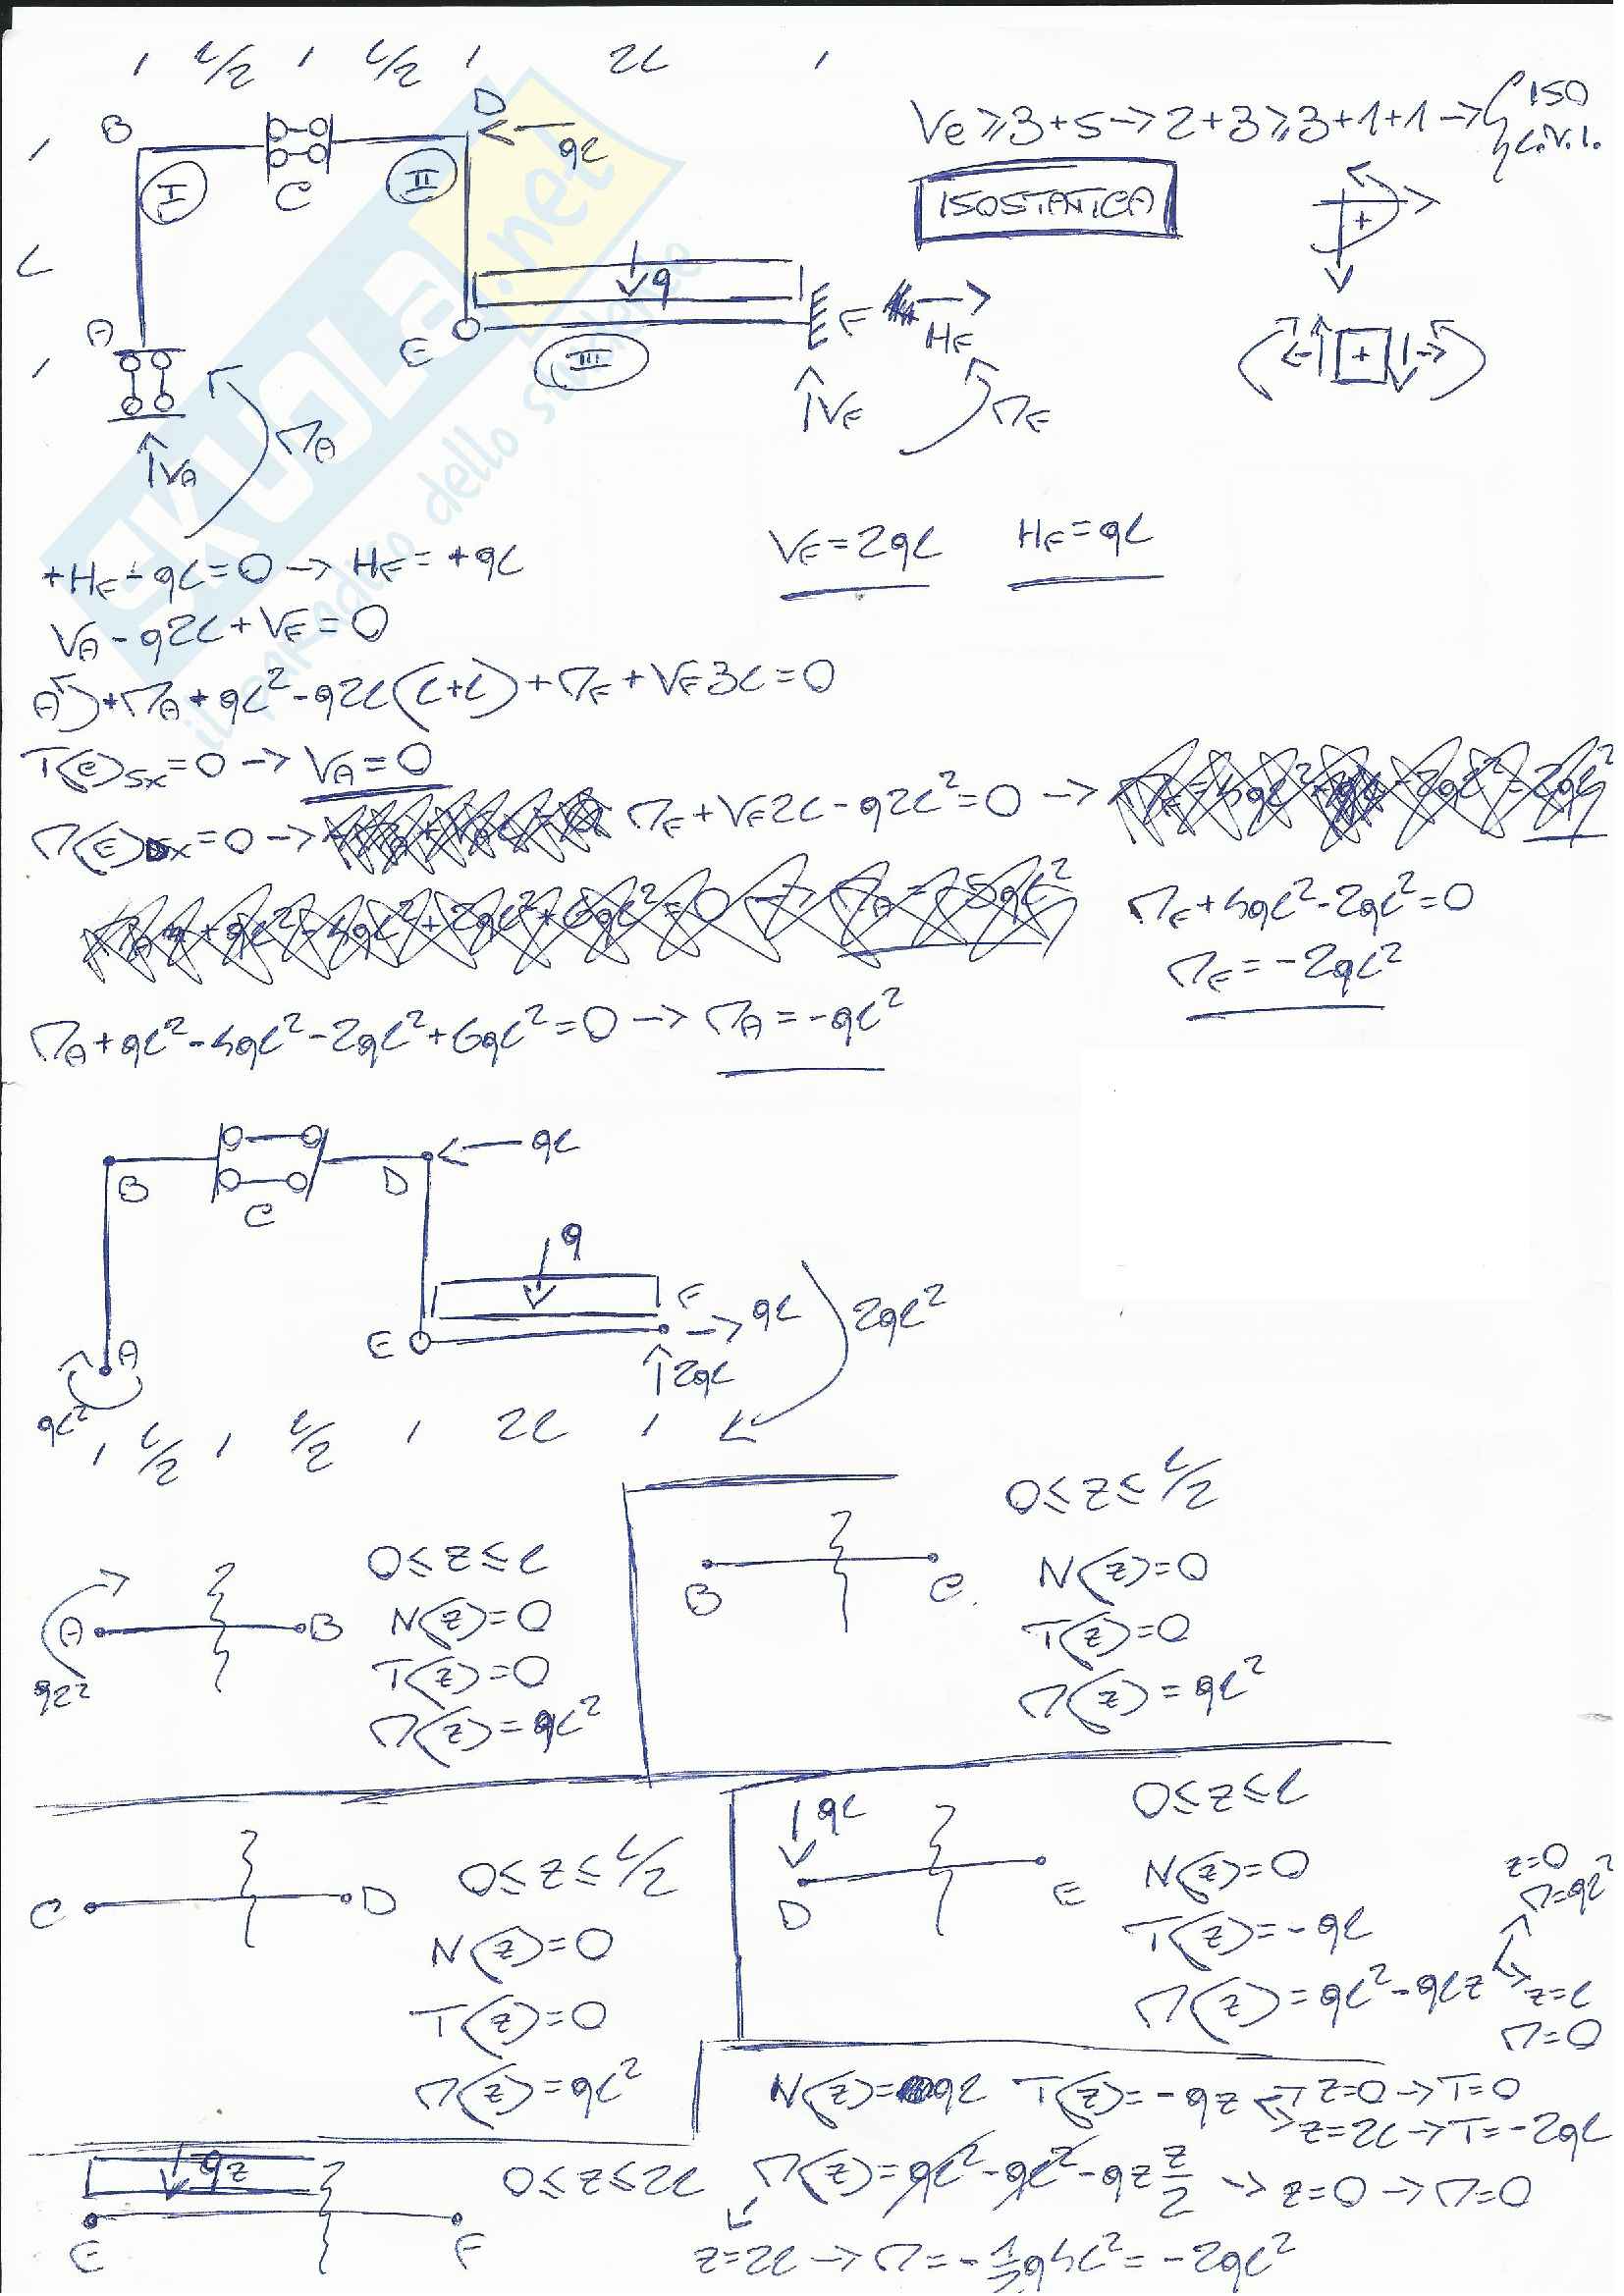 L/2 L/2 2L
B D ← qL
I C II
L
A q
E III F HF
VA MA VF MF
Ve ≥ 3+5 → 2+3 ≥ 3+1+1 → { ISO
C.V.I.
ISOSTATICA
+
+
SKUOLA.net
il paradiso dello studente
+HF - qL = 0 → HF = +qL
VF = 2qL HF = qL
VA - q2L + VF = 0
A) + MA + qL² - q2L(L+L) + MF + VF3L = 0
T(C)sx = 0 → VA = 0
M(E)Dx = 0 → MF + VF2L - q2L² = 0 →
MF + 4qL² - 2qL² = 0
MF = -2qL²
MA + qL² - 4qL² - 2qL² + 6qL² = 0 → MA = -qL²
B C D ← qL
q
E F → qL 2qL²
A 2qL
qL²
L/2 L/2 2L
A B
qL²
0 ≤ z ≤ L
N(z) = 0
T(z) = 0
M(z) = qL²
B C
0 ≤ z ≤ L/2
N(z) = 0
T(z) = 0
M(z) = qL²
C D
0 ≤ z ≤ L/2
N(z) = 0
T(z) = 0
M(z) = qL²
qL
D E
0 ≤ z ≤ L
N(z) = 0
T(z) = -qL
M(z) = qL² - qLz
z=0
M=qL²
z=L
M=0
qz
E F
0 ≤ z ≤ 2L
N(z) = qL T(z) = -qz z=0 → T=0
z=2L → T=-2qL
M(z) = qL² - qL² - qz z/2 → z=0 → M=0
z=2L → M = -1/2 q4L² = -2qL²